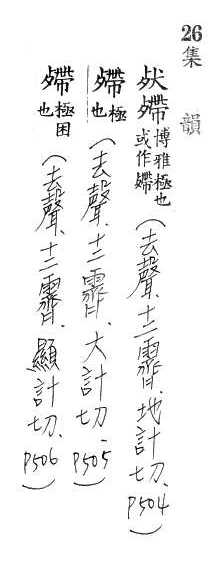 26 集韻
殢 博雅極也或作殢（去聲、十二霽、地計切、P504）
殢 極也（去聲、十二霽、大計切、P505）
殢 極困也（去聲、十二霽、顯計切、P506）